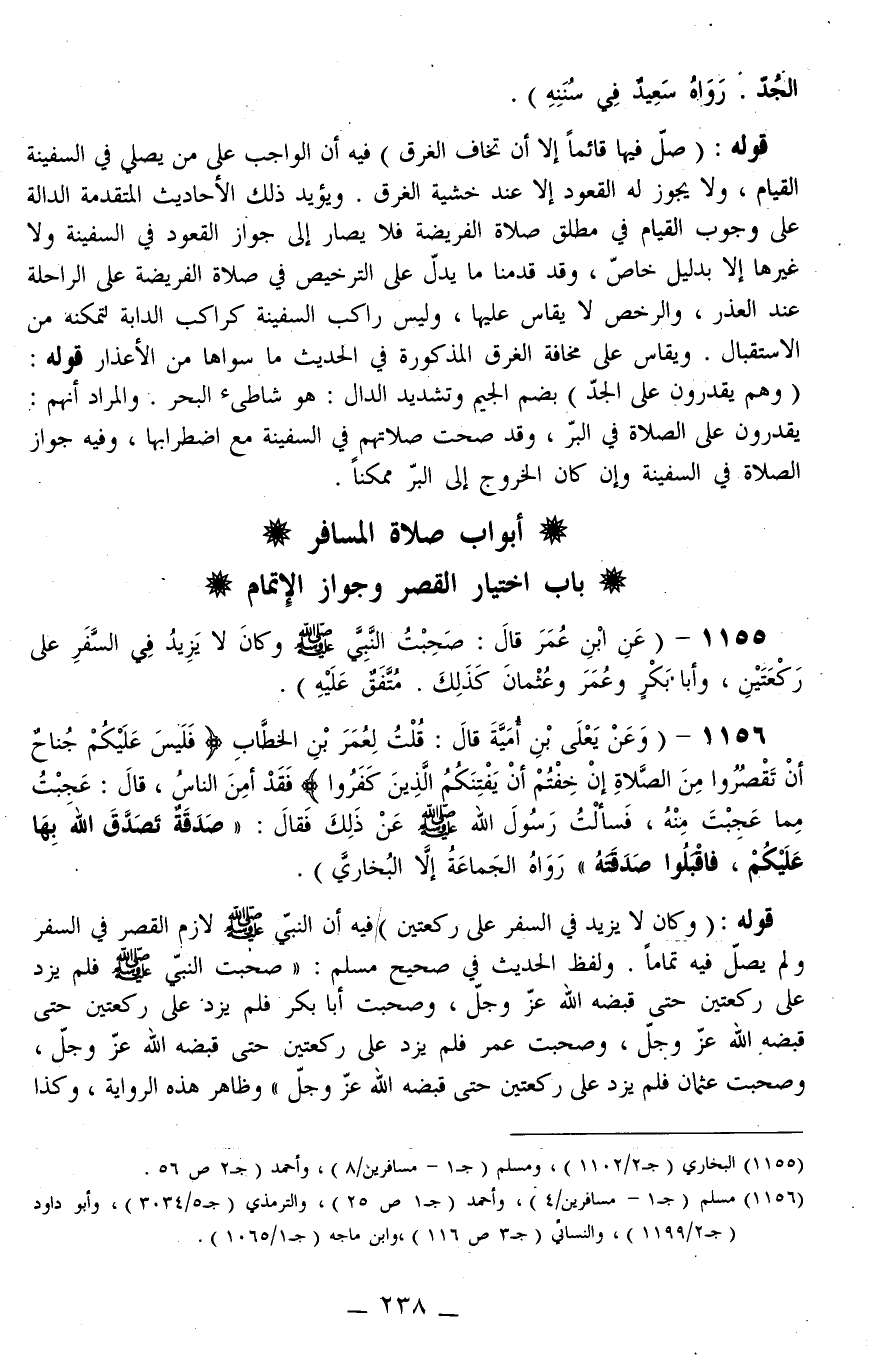 الجُدّ . رَوَاهُ سَعِيدٌ فِي سُنَنِهِ ) .
قوله : ( صلّ فيها قائماً إلا أن تخاف الغرق ) فيه أن الواجب على من يصلي في السفينة
القيام ، ولا يجوز له القعود إلا عند خشية الغرق . ويؤيد ذلك الأحاديث المتقدمة الدالة
على وجوب القيام في مطلق صلاة الفريضة فلا يصار إلى جواز القعود في السفينة ولا
غيرها إلا بدليل خاصّ ، وقد قدمنا ما يدلّ على الترخيص في صلاة الفريضة على الراحلة
عند العذر ، والرخص لا يقاس عليها ، وليس راكب السفينة كراكب الدابة لتمكنه من
الاستقبال . ويقاس على مخافة الغرق المذكورة في الحديث ما سواها من الأعذار قوله :
( وهم يقدرون على الجدّ ) بضم الجيم وتشديد الدال : هو شاطىء البحر . والمراد أنهم :
يقدرون على الصلاة في البرّ ، وقد صحت صلاتهم في السفينة مع اضطرابها ، وفيه جواز
الصلاة في السفينة وإن كان الخروج إلى البرّ ممكناً .
❋ أبواب صلاة المسافر ❋
❋ باب اختيار القصر وجواز الإتمام ❋
١١٥٥ – ( عَنِ ابْنِ عُمَرَ قالَ : صَحِبْتُ النَّبِيَّ ﷺ وكانَ لا يَزِيدُ فِي السَّفَرِ على
رَكْعَتَيْنِ ، وأبا بَكْرٍ وعُمَرَ وعُثْمانَ كَذَلِكَ . مُتَّفَقٌ عَلَيْهِ ) .
١١٥٦ – ( وَعَنْ يَعْلَى بْنِ أُمَيَّةَ قالَ : قُلْتُ لِعُمَرَ بْنِ الخطَّابِ ﴿ فَلَيسَ عَلَيْكُمْ جُناحٌ
أنْ تَقْصُرُوا مِنَ الصَّلاةِ إنْ خِفْتُمْ أنْ يَفْتِنَكُمُ الَّذِينَ كَفَرُوا ﴾ فَقَدْ أمِنَ الناسُ ، قالَ : عَجِبْتُ
مِما عَجِبْتَ مِنْهُ ، فَسألْتُ رَسُولَ الله ﷺ عَنْ ذَلِكَ فَقالَ : « صَدَقَةٌ تَصَدَّقَ الله بِهَا
عَلَيْكُمْ ، فاقْبَلُوا صَدَقَتَهُ » رَوَاهُ الجَماعَةُ إلَّا البُخاريَّ ) .
قوله : ( وكان لا يزيد في السفر على ركعتين ) فيه أن النبيّ ﷺ لازم القصر في السفر
ولم يصلّ فيه تماماً . ولفظ الحديث في صحيح مسلم : « صحبت النبيّ ﷺ فلم يزد
على ركعتين حتى قبضه الله عزّ وجلّ ، وصحبت أبا بكر فلم يزد على ركعتين حتى
قبضه الله عزّ وجلّ ، وصحبت عمر فلم يزد على ركعتين حتى قبضه الله عزّ وجلّ ،
وصحبت عثمان فلم يزد على ركعتين حتى قبضه الله عزّ وجلّ » وظاهر هذه الرواية ، وكذا
(١١٥٥) البخاري ( جـ١١٠٢/٢ ) ، ومسلم ( جـ١ – مسافرين/٨ ) ، وأحمد ( جـ٢ ص ٥٦ .
(١١٥٦) مسلم ( جـ١ – مسافرين/٤ ) ، وأحمد ( جـ١ ص ٢٥ ) ، والترمذي ( جـ٣٠٣٤/٥ ) ، وأبو داود
( جـ١١٩٩/٢ ) ، والنسائي ( جـ٣ ص ١١٦ ) ،وابن ماجه ( جـ١٠٦٥/١ ) .
– ٢٣٨ –